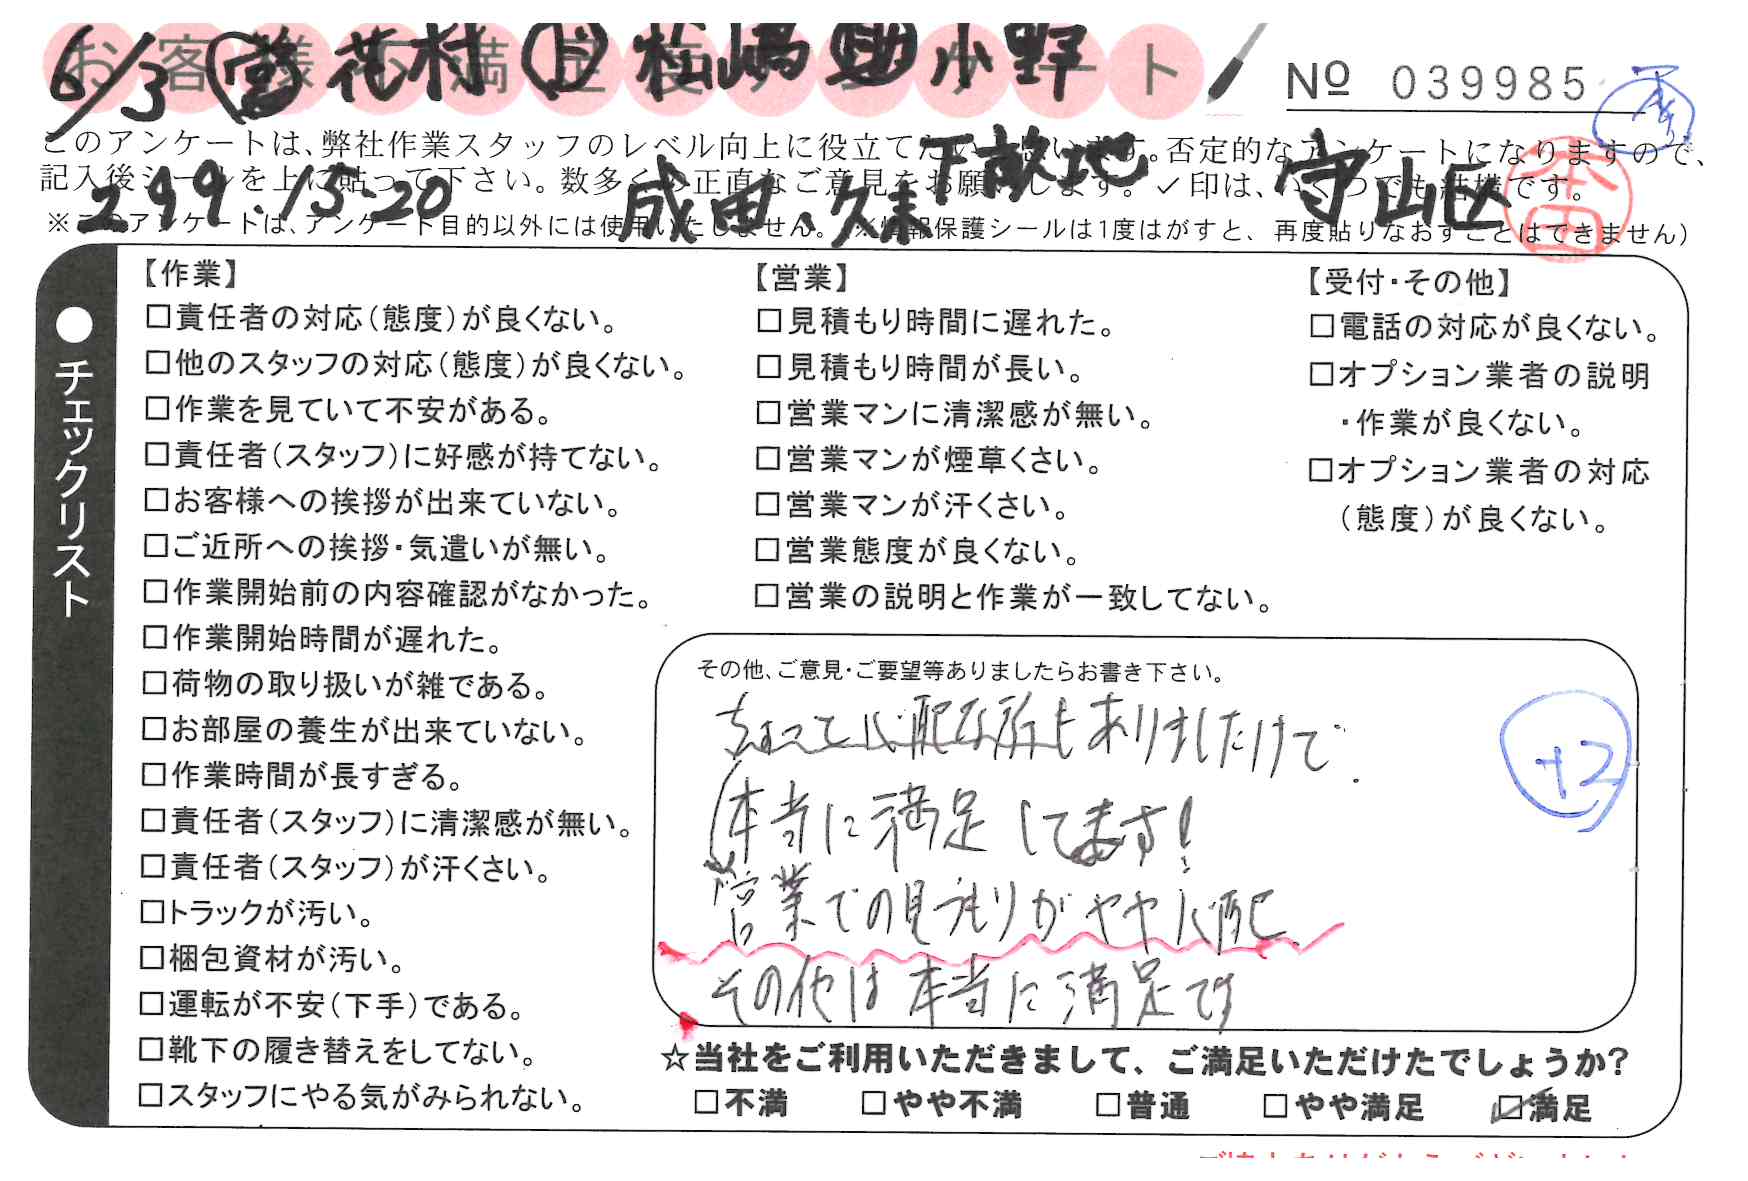 お客様不満足度アンケート
6/3 営 花村 ド 松嶋 助 小野
№ 039985
このアンケートは、弊社作業スタッフのレベル向上に役立てたいと思います。否定的なアンケートになりますので、
記入後シールを上に貼って下さい。数多くの正直なご意見をお願いします。✓印は、いくつでも結構です。
299.13-20 成田.久末 下敷地 守山区
本田
※このアンケートは、アンケート目的以外には使用いたしません。(※情報保護シールは1度はがすと、再度貼りなおすことはできません)
●チェックリスト
【作業】
□責任者の対応(態度)が良くない。
□他のスタッフの対応(態度)が良くない。
□作業を見ていて不安がある。
□責任者(スタッフ)に好感が持てない。
□お客様への挨拶が出来ていない。
□ご近所への挨拶・気遣いが無い。
□作業開始前の内容確認がなかった。
□作業開始時間が遅れた。
□荷物の取り扱いが雑である。
□お部屋の養生が出来ていない。
□作業時間が長すぎる。
□責任者(スタッフ)に清潔感が無い。
□責任者(スタッフ)が汗くさい。
□トラックが汚い。
□梱包資材が汚い。
□運転が不安(下手)である。
□靴下の履き替えをしてない。
□スタッフにやる気がみられない。
【営業】
□見積もり時間に遅れた。
□見積もり時間が長い。
□営業マンに清潔感が無い。
□営業マンが煙草くさい。
□営業マンが汗くさい。
□営業態度が良くない。
□営業の説明と作業が一致してない。
【受付・その他】
□電話の対応が良くない。
□オプション業者の説明
・作業が良くない。
□オプション業者の対応
(態度)が良くない。
その他、ご意見・ご要望等ありましたらお書き下さい。
ちょっと心配な所もありましたけで.
本当に満足してます!
営業での見つもりがやや心配
その他は本当に満足です
+2
☆当社をご利用いただきまして、ご満足いただけたでしょうか?
□不満 □やや不満 □普通 □やや満足 ☑満足